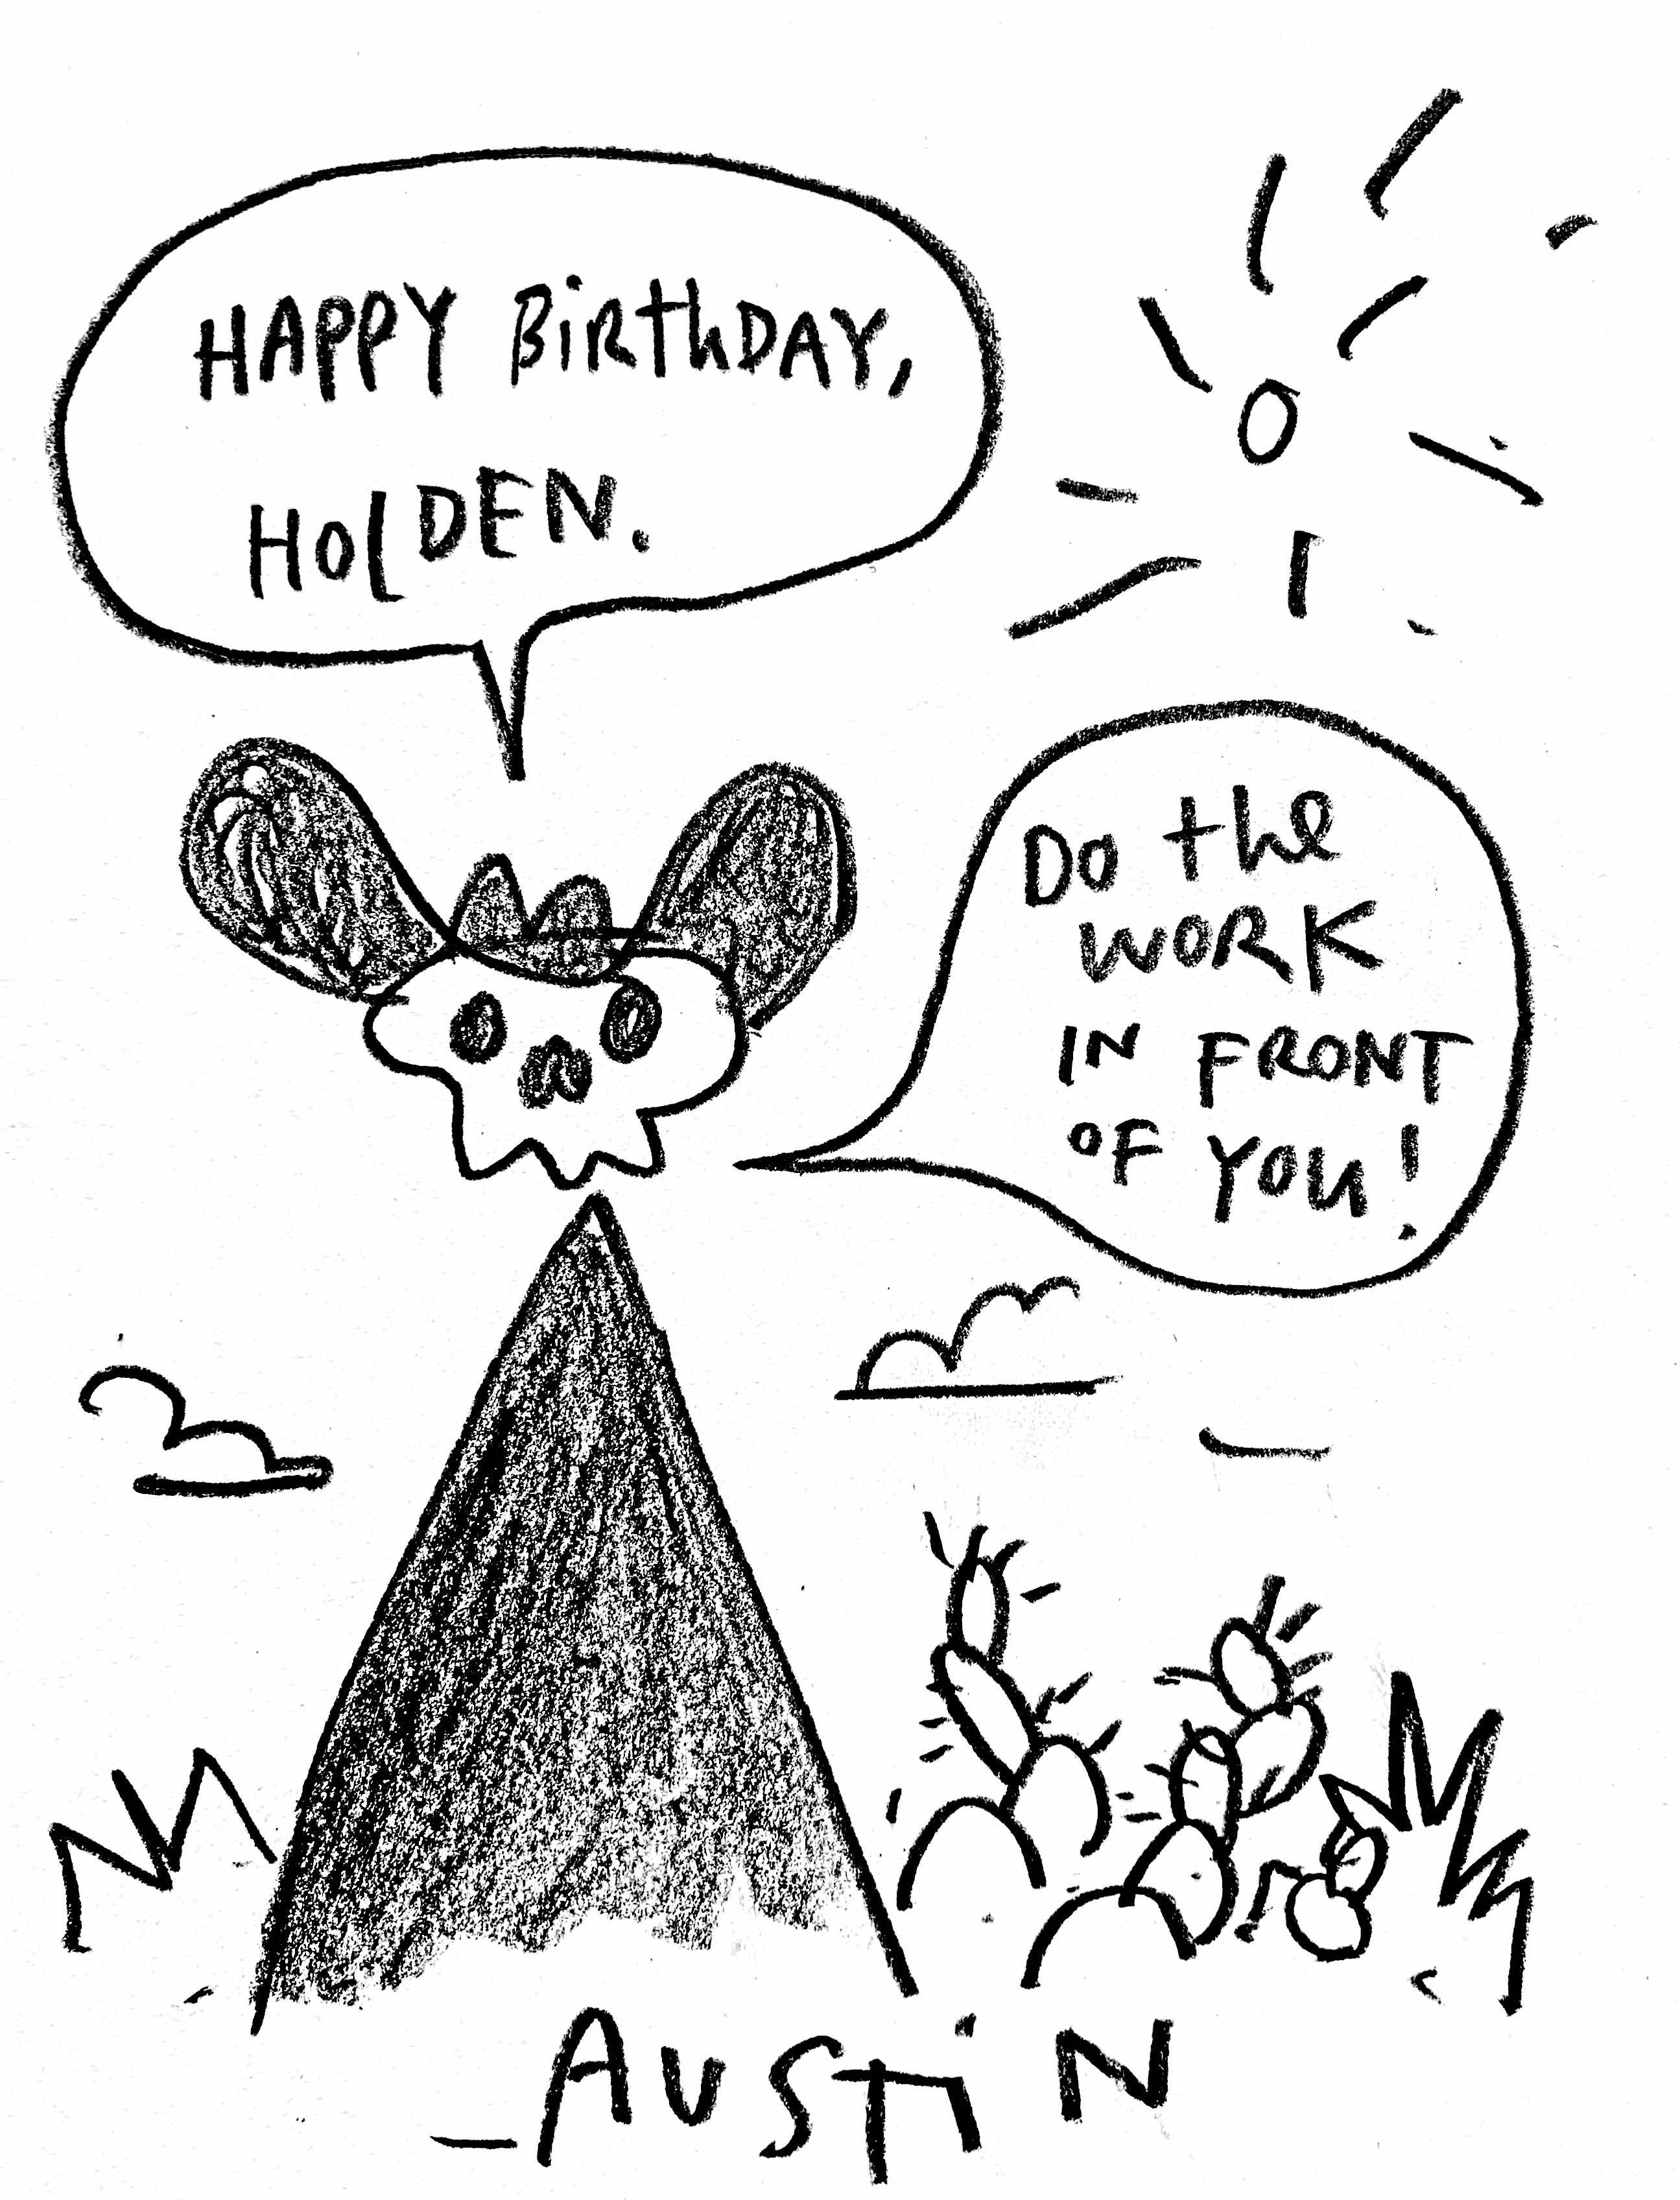 HAPPY BiRthDAY,
HolDEN.
Do the
WORK
IN FRONT
OF YOU!
_AUSTiN